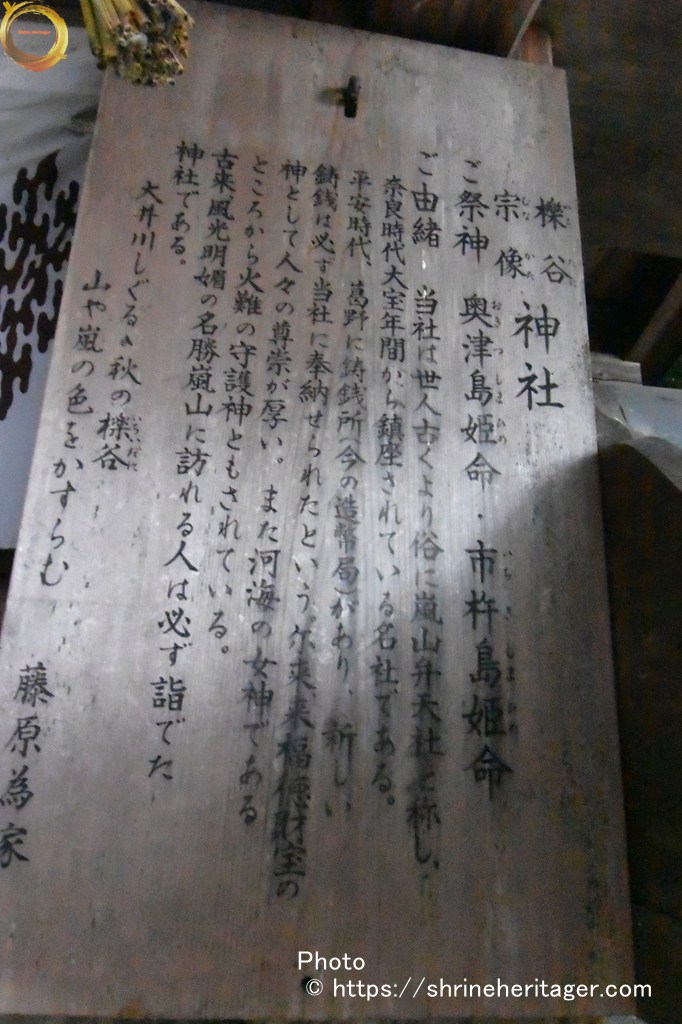 櫟谷
宗像
神社
むな かた
ご祭神 奥津島姫命・市杵島姫命
おきつしまひめ いちきしまひめ
ご由緒 当社は世人古くより俗に嵐山弁天社と称し、
奈良時代大宝年間から鎮座されている名社である。
平安時代、葛野に鋳銭所(今の造幣局)があり、新しい
鋳銭は必ず当社に奉納せられたという。尓来、福徳財宝の
神として人々の尊崇が厚い。また河海の女神である
ところから火難の守護神ともされている。
古来風光明媚の名勝嵐山に訪れる人は必ず詣でた
神社である。
大井川しぐるゝ秋の櫟谷
山や嵐の色をかすらむ
藤原為家
Photo
© https://shrineheritager.com